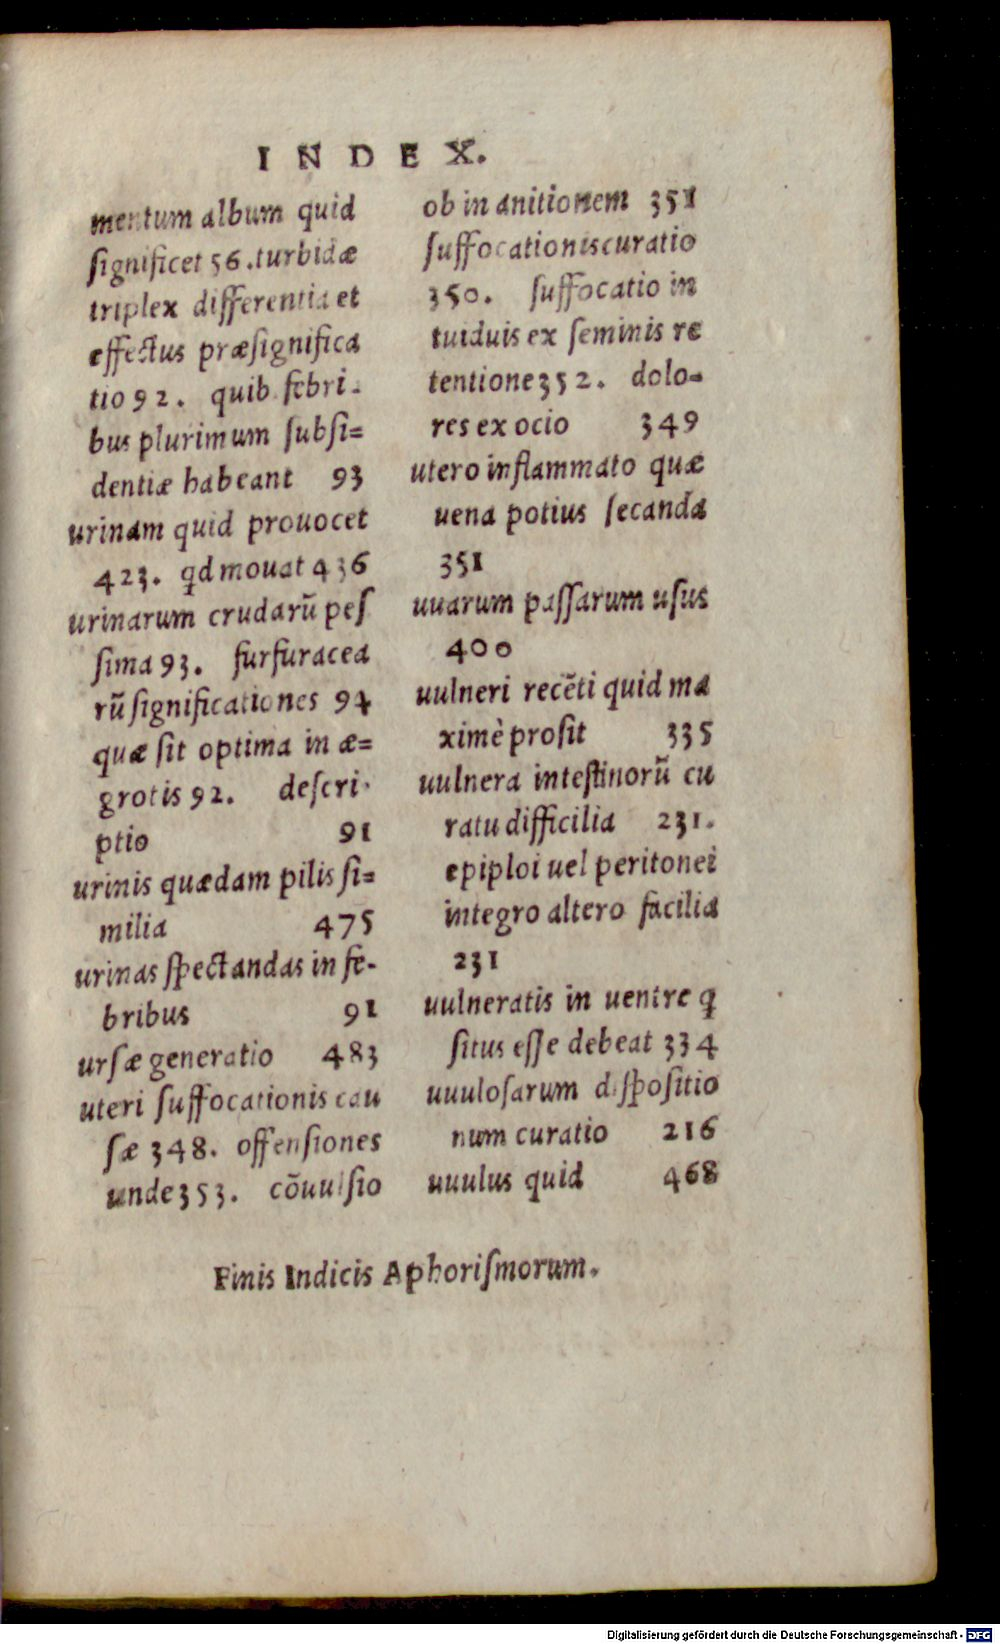 INDEX.
mentum album quid
ſignificet 56.turbidæ
triplex differentia et
effectus præſignifica
tio 92. quib. febri-
bus plurimum ſubſi=
dentiæ habeant 93
urinam quid prouocet
423. qd mouat 436
urinarum crudarũ peſ
ſima 93. furfuracea
rũ ſignificationes 94
quæ ſit optima in æ=
grotis 92. deſcri-
ptio 91
urinis quædam pilis ſi=
milia 475
urinas ſpectandas in fe-
bribus 91
urſæ generatio 483
uteri ſuffocationis cau
ſæ 348. offenſiones
unde 353. cõuulſio
ob in anitionem 351
ſuffocationis curatio
350. ſuffocatio in
uiduis ex ſeminis re
tentione 352. dolo-
res ex ocio 349
utero inflammato quæ
uena potius ſecanda
351
uuarum paſſarum uſus
400
uulneri recẽti quid ma
ximè proſit 335
uulnera inteſtinorũ cu
ratu difficilia 231.
epiploi uel peritonei
integro altero facilia
231
uulneratis in uentre q
ſitus eſſe debeat 334
uuuloſarum diſpoſitio
num curatio 216
uuulus quid 468
Finis Indicis Aphoriſmorum.
Digitalisierung gefördert durch die Deutsche Forschungsgemeinschaft - DFG